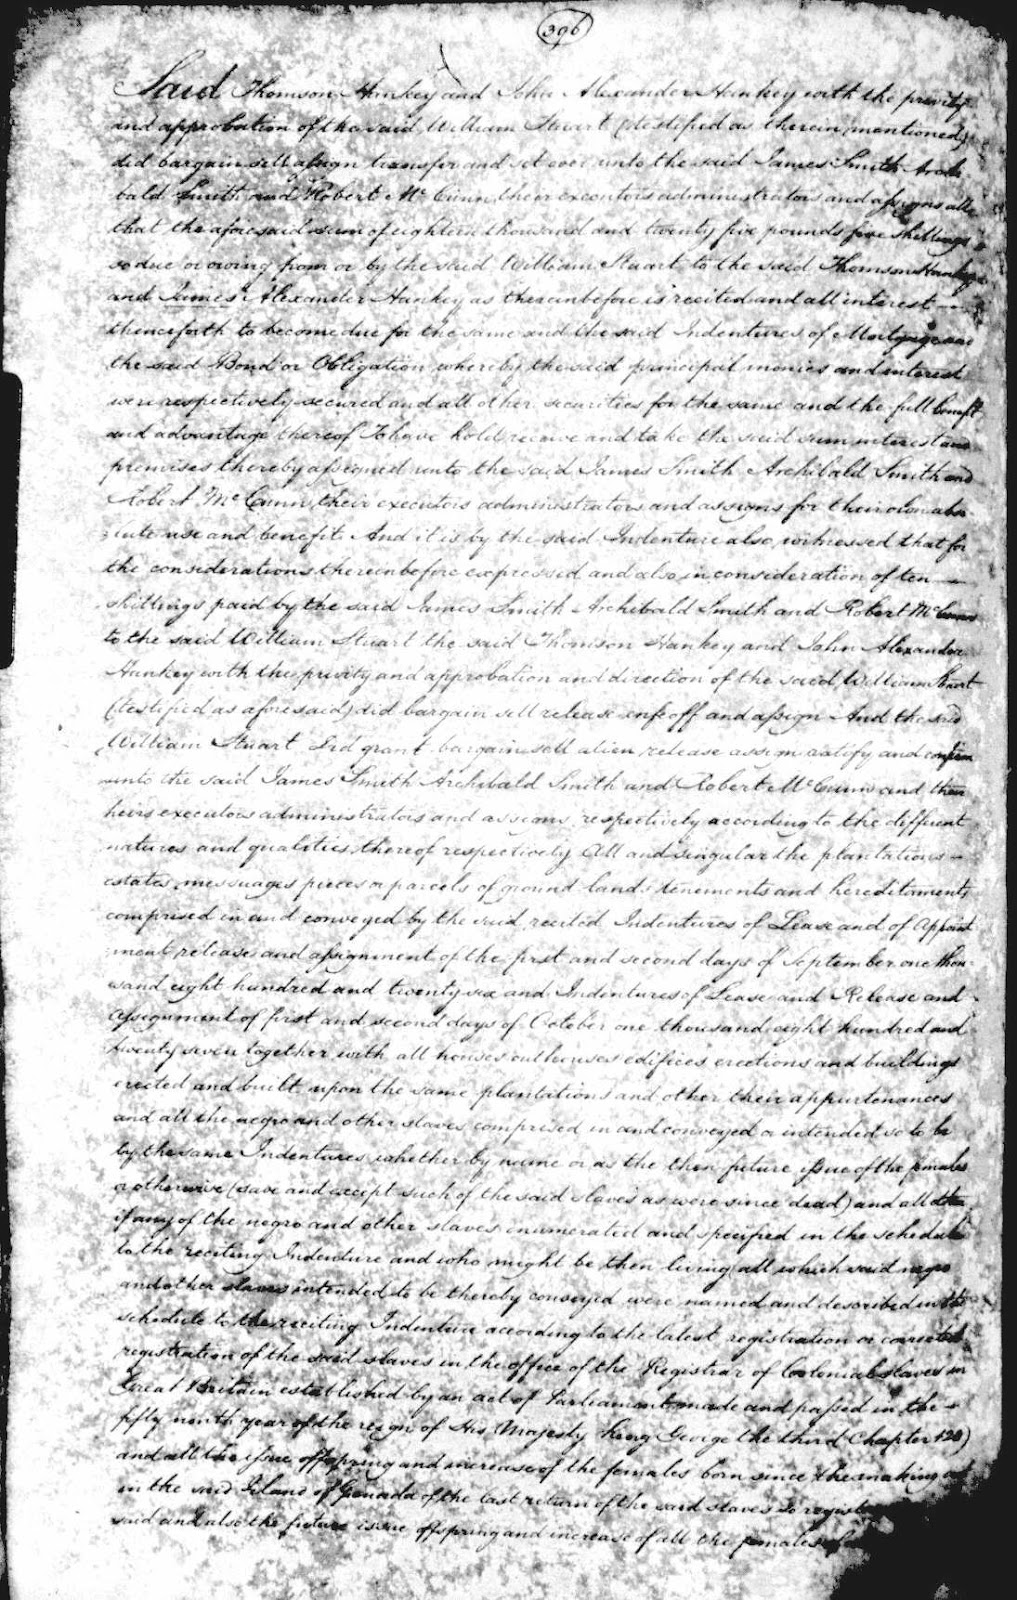 396
Said Thomson Hankey and John Alexander Hankey with the privity
and approbation of the said William Stuart (testified as therein mentioned)
did bargain sell assign transfer and set over unto the said James Smith Archi
bald Smith and Robert McCunn their executors administrators and assigns all
that the aforesaid sum of eighteen thousand and twenty five pounds five shillings
so due or owing from or by the said William Stuart to the said Thomson Hankey
and James Alexander Hankey as thereinbefore is recited and all interest
thenceforth to become due for the same and the said Indentures of Mortgage and
the said Bond or Obligation whereby the said principal monies and interest
were respectively secured and all other securities for the same and the full benefit
and advantage thereof To have hold receive and take the said sum interest and
premises thereby assigned unto the said James Smith Archibald Smith and
Robert McCunn their executors administrators and assigns for their own abso
lute use and benefit And it is by the said Indenture also witnessed that for
the considerations thereinbefore expressed and also in consideration of ten
shillings paid by the said James Smith Archibald Smith and Robert McCunn
to the said William Stuart the said Thomson Hankey and John Alexander
Hankey with the privity and approbation and direction of the said William Stuart
(testified as aforesaid) did bargain sell release enfeoff and assign And the said
William Stuart Did grant bargain sell alien release assign ratify and confirm
unto the said James Smith Archibald Smith and Robert McCunn and their
heirs executors administrators and assigns respectively according to the different
natures and qualities thereof respectively All and singular the plantations
estates messuages pieces or parcels of ground lands tenements and hereditaments
comprised in and conveyed by the said recited Indentures of Lease and of Appoint
ment release and assignment of the first and second days of September one thou
sand eight hundred and twenty six and Indentures of Lease and Release and
Assignment of first and second days of October one thousand eight hundred and
twenty seven together with all houses outhouses edifices erections and buildings
erected and built upon the same plantations and other their appurtenances
and all the negro and other slaves comprised in and conveyed or intended so to be
by the same Indentures whether by name or as the then future issue of the females
or otherwise (save and except such of the said slaves as were since dead) and all
if any of the negro and other slaves enumerated and specified in the schedule
to the reciting Indenture and who might be then living all which said negro
and other slaves intended to be thereby conveyed were named and described in the
schedule to the reciting Indenture according to the latest registration or corrected
registration of the said slaves in the office of the Registrar of Colonial slaves in
Great Britain established by an act of Parliament made and passed in the
fifty ninth year of the reign of His Majesty King George the third Chapter 120)
and all the issue offspring and increase of the females born since the making
in the said Island of Grenada of the last return of the said slaves so
said and also the future issue offspring and increase of all the females